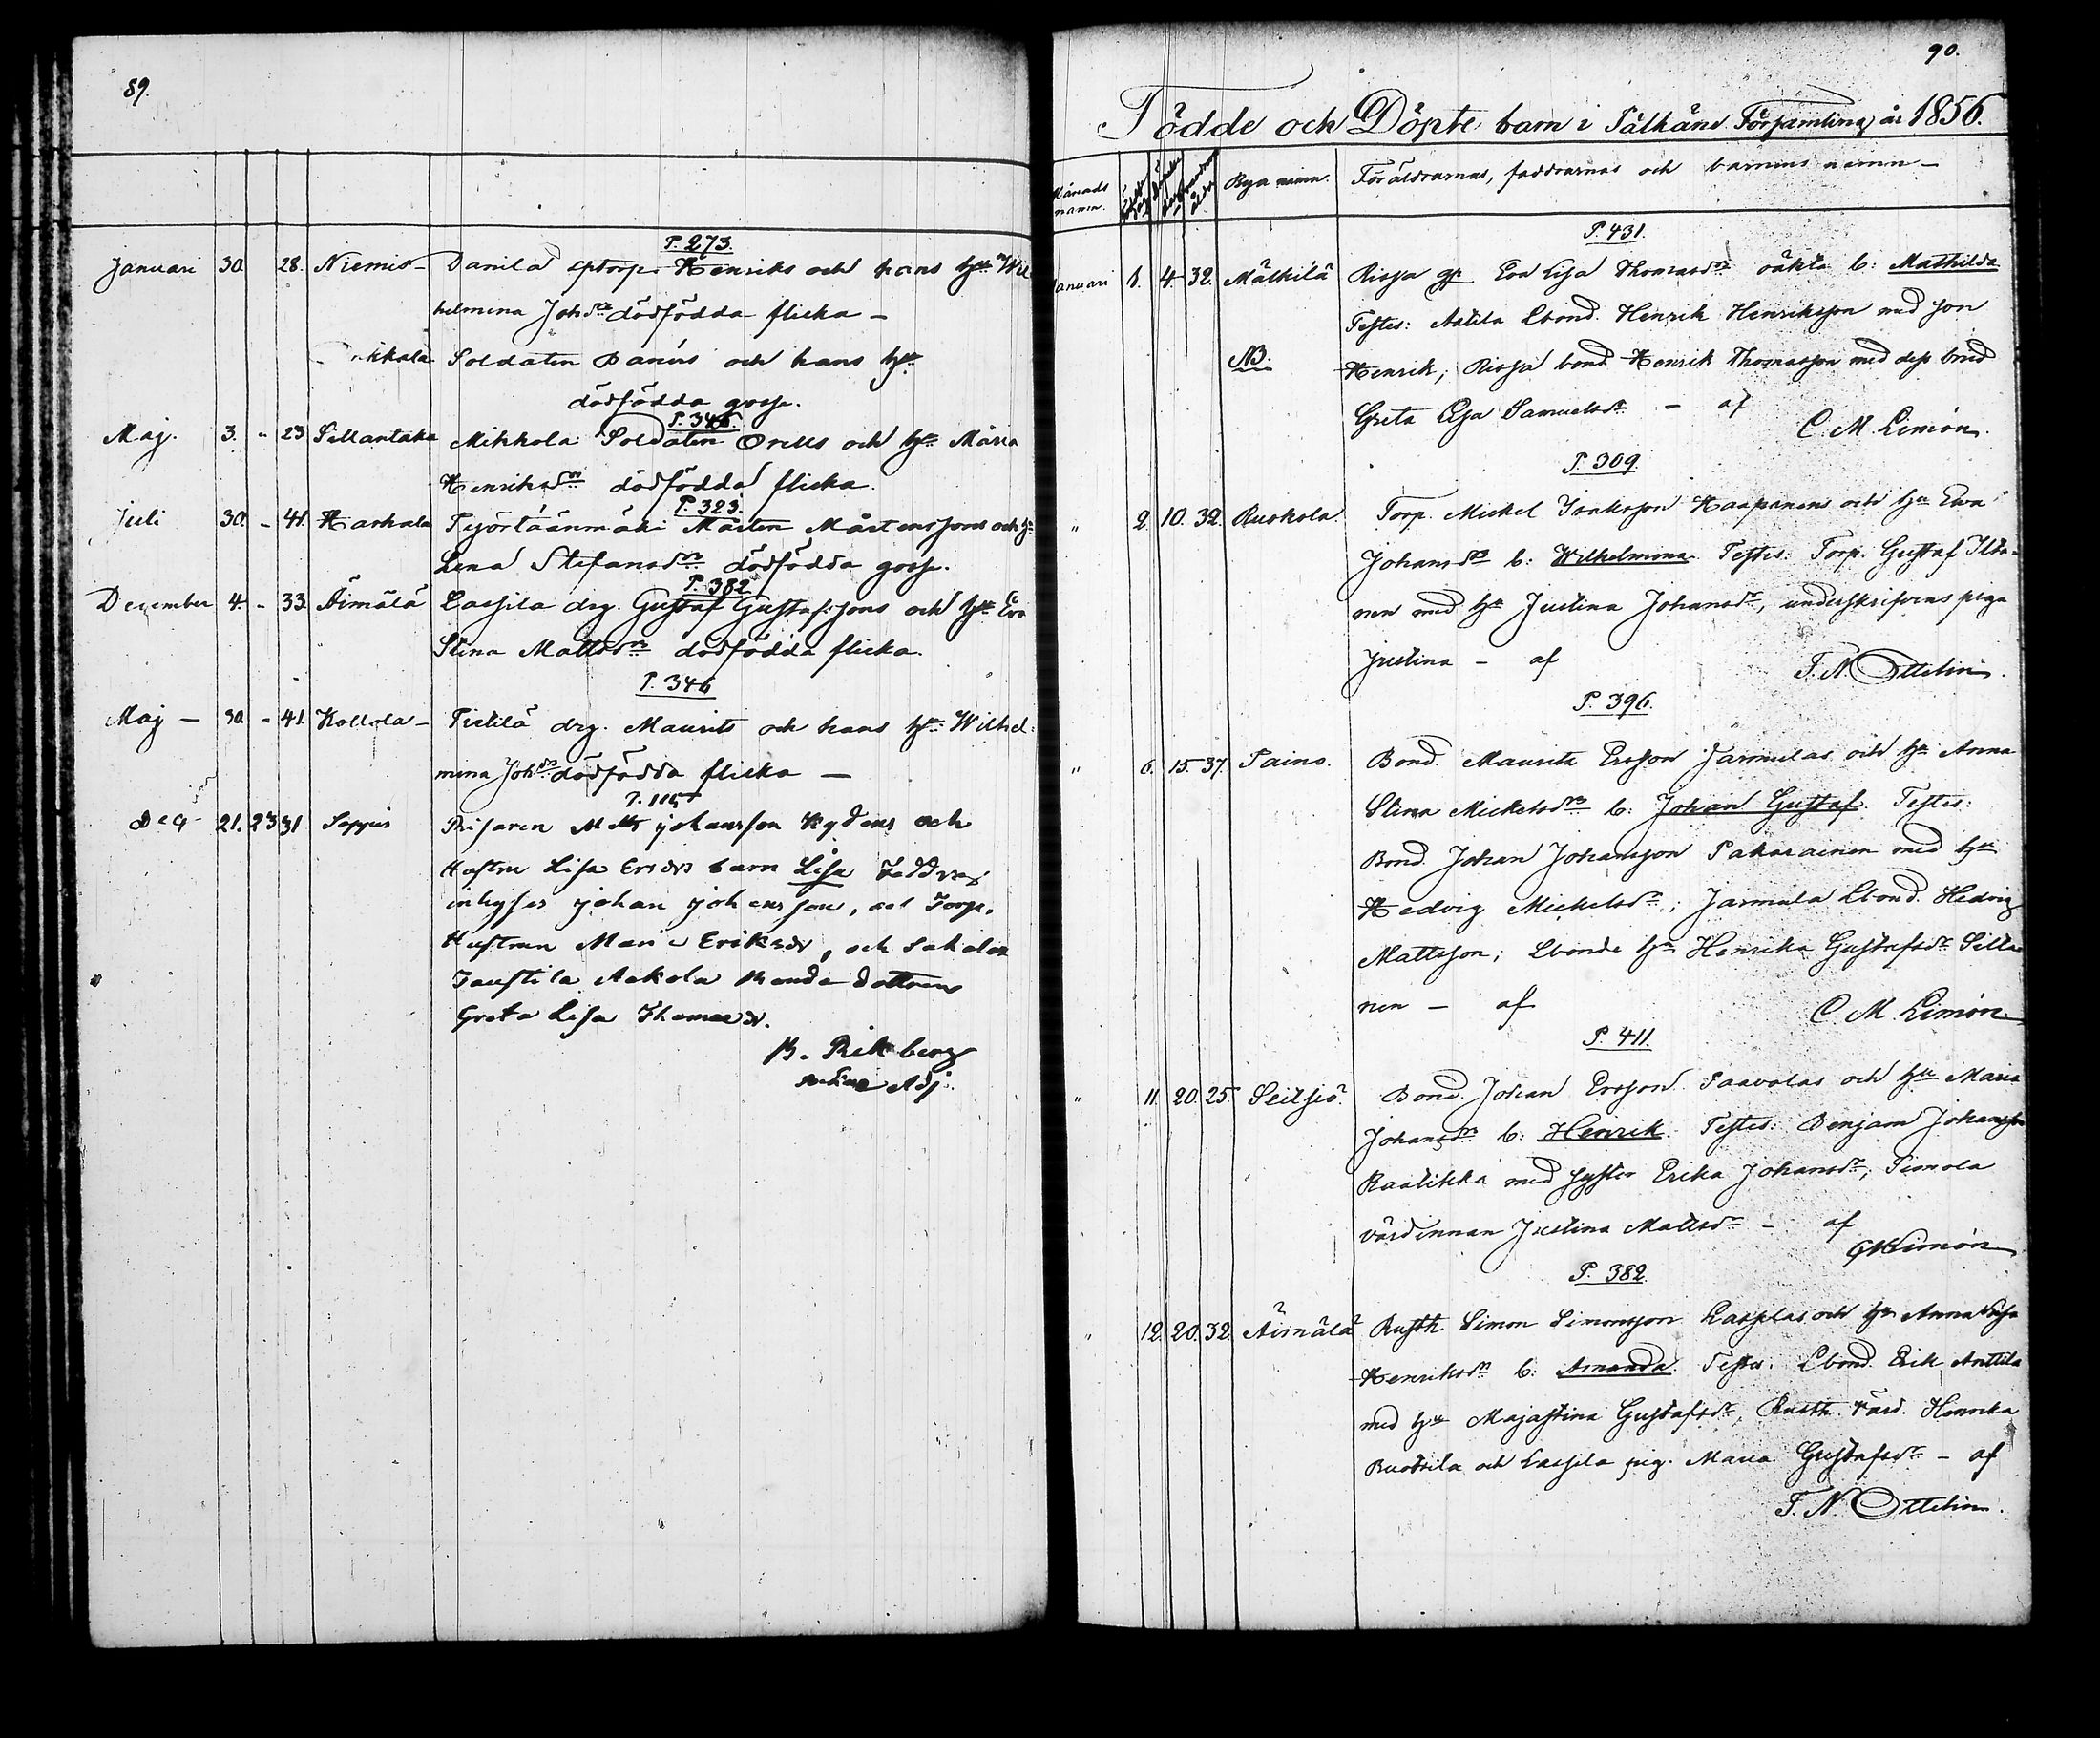 89.
P. 273.
Januari 30 28. Niemis- Danila Henriks och hans hu Wil
helmina Johdr dödfödda flicka -
Soldaten och hans hu
dödfödda gosse.
P. 346.
Maj. 3. - 23 Sillantaka Mikkola Soldaten Orells och hu Maria
Henriksdr dödfödda flicka.
P. 323.
Juli 30. - 41. Harhala Mårten Mårtenssons och hu
Lena Stefansdr dödfödda gosse.
P. 382
December 4. - 33. Äimälä Lassila drg. Gustaf Gustafssons och hu Eva
Stina Mattsdr dödfödda flicka.
P. 346
Maj - 30. - 41. Kollola - drg. Maurits och hans hu Wilhel-
mina Johdr dödfödda flicka -
P. 115
Dec. 21. 23 31 Seppis Matts johansson Rydens och
Hustru Lisa Ersdr barn Lisa Faddrar
inhyses johan johansson, Torp.
Hustrun Maria Eriksdr, och
Aekola Bonde dottren
Greta Lisa Thomasdr.
B. Rikberg
Adj.
90.
Födde och Döpte barn i Pälkäne Församling år 1856.
Månads namn. Bya namn. Föräldrarnas, faddrarnas och barnens namn -
P. 431.
Januari 1. 4. 32. Mälkilä Rissa Eva Lisa Thomasdr oäkta b: Mathilda
Testes: Attila Lbond. Henrik Henriksson med son
NB. Henrik; Rissa bond Henrik Thomasson med dess brud
Greta Lisa Samuelsdr - af
C. M. Limón.
P. 309.
" 2. 10. 32. Ruokola. Torp. Mickel Haapanens och hu Eva
Johansdr b: Wilhelmina. Testes: Torp. Gustaf
nen med hu Justina Johansdr, underskrifvens piga
Justina - af
F. N. Ottelin.
P. 396.
" 6. 15. 37. Paino. Bond. Maurits Ersson Jarmulas och hu Anna
Stina Mickelsdr b: Johan Gustaf. Testes:
Bond. Johan Johansson Pakarainen med hu
Hedvig Mickelsdr; Jarmula Lbond. Hedvig
Mattsson; Lbonde hu Henrika Gustafsdr Silla
nen - af
C. M. Limón
P. 411.
" 11. 20. 25. Seitsis. Bond. Johan Ersson Paavolas och hu Maria
Johansdr b: Henrik. Testes: Benjam Johansson
Raatikka med syster Erika Johansdr; Simola
värdinnan Justina Mattsdr - af
CMLimón
P. 382.
" 12. 20. 32. Äimälä Rusth. Simon Simonsson Lassilas och hu Anna Lisa
Henriksdr b: Amanda. Testes: Lbond. Erik Anttila
med hu Majastina Gustafsdr, Rusth. värd. Henrika
Ruotsila och Lassila pig. Maria Gustafsdr - af
F. N. Ottelin.